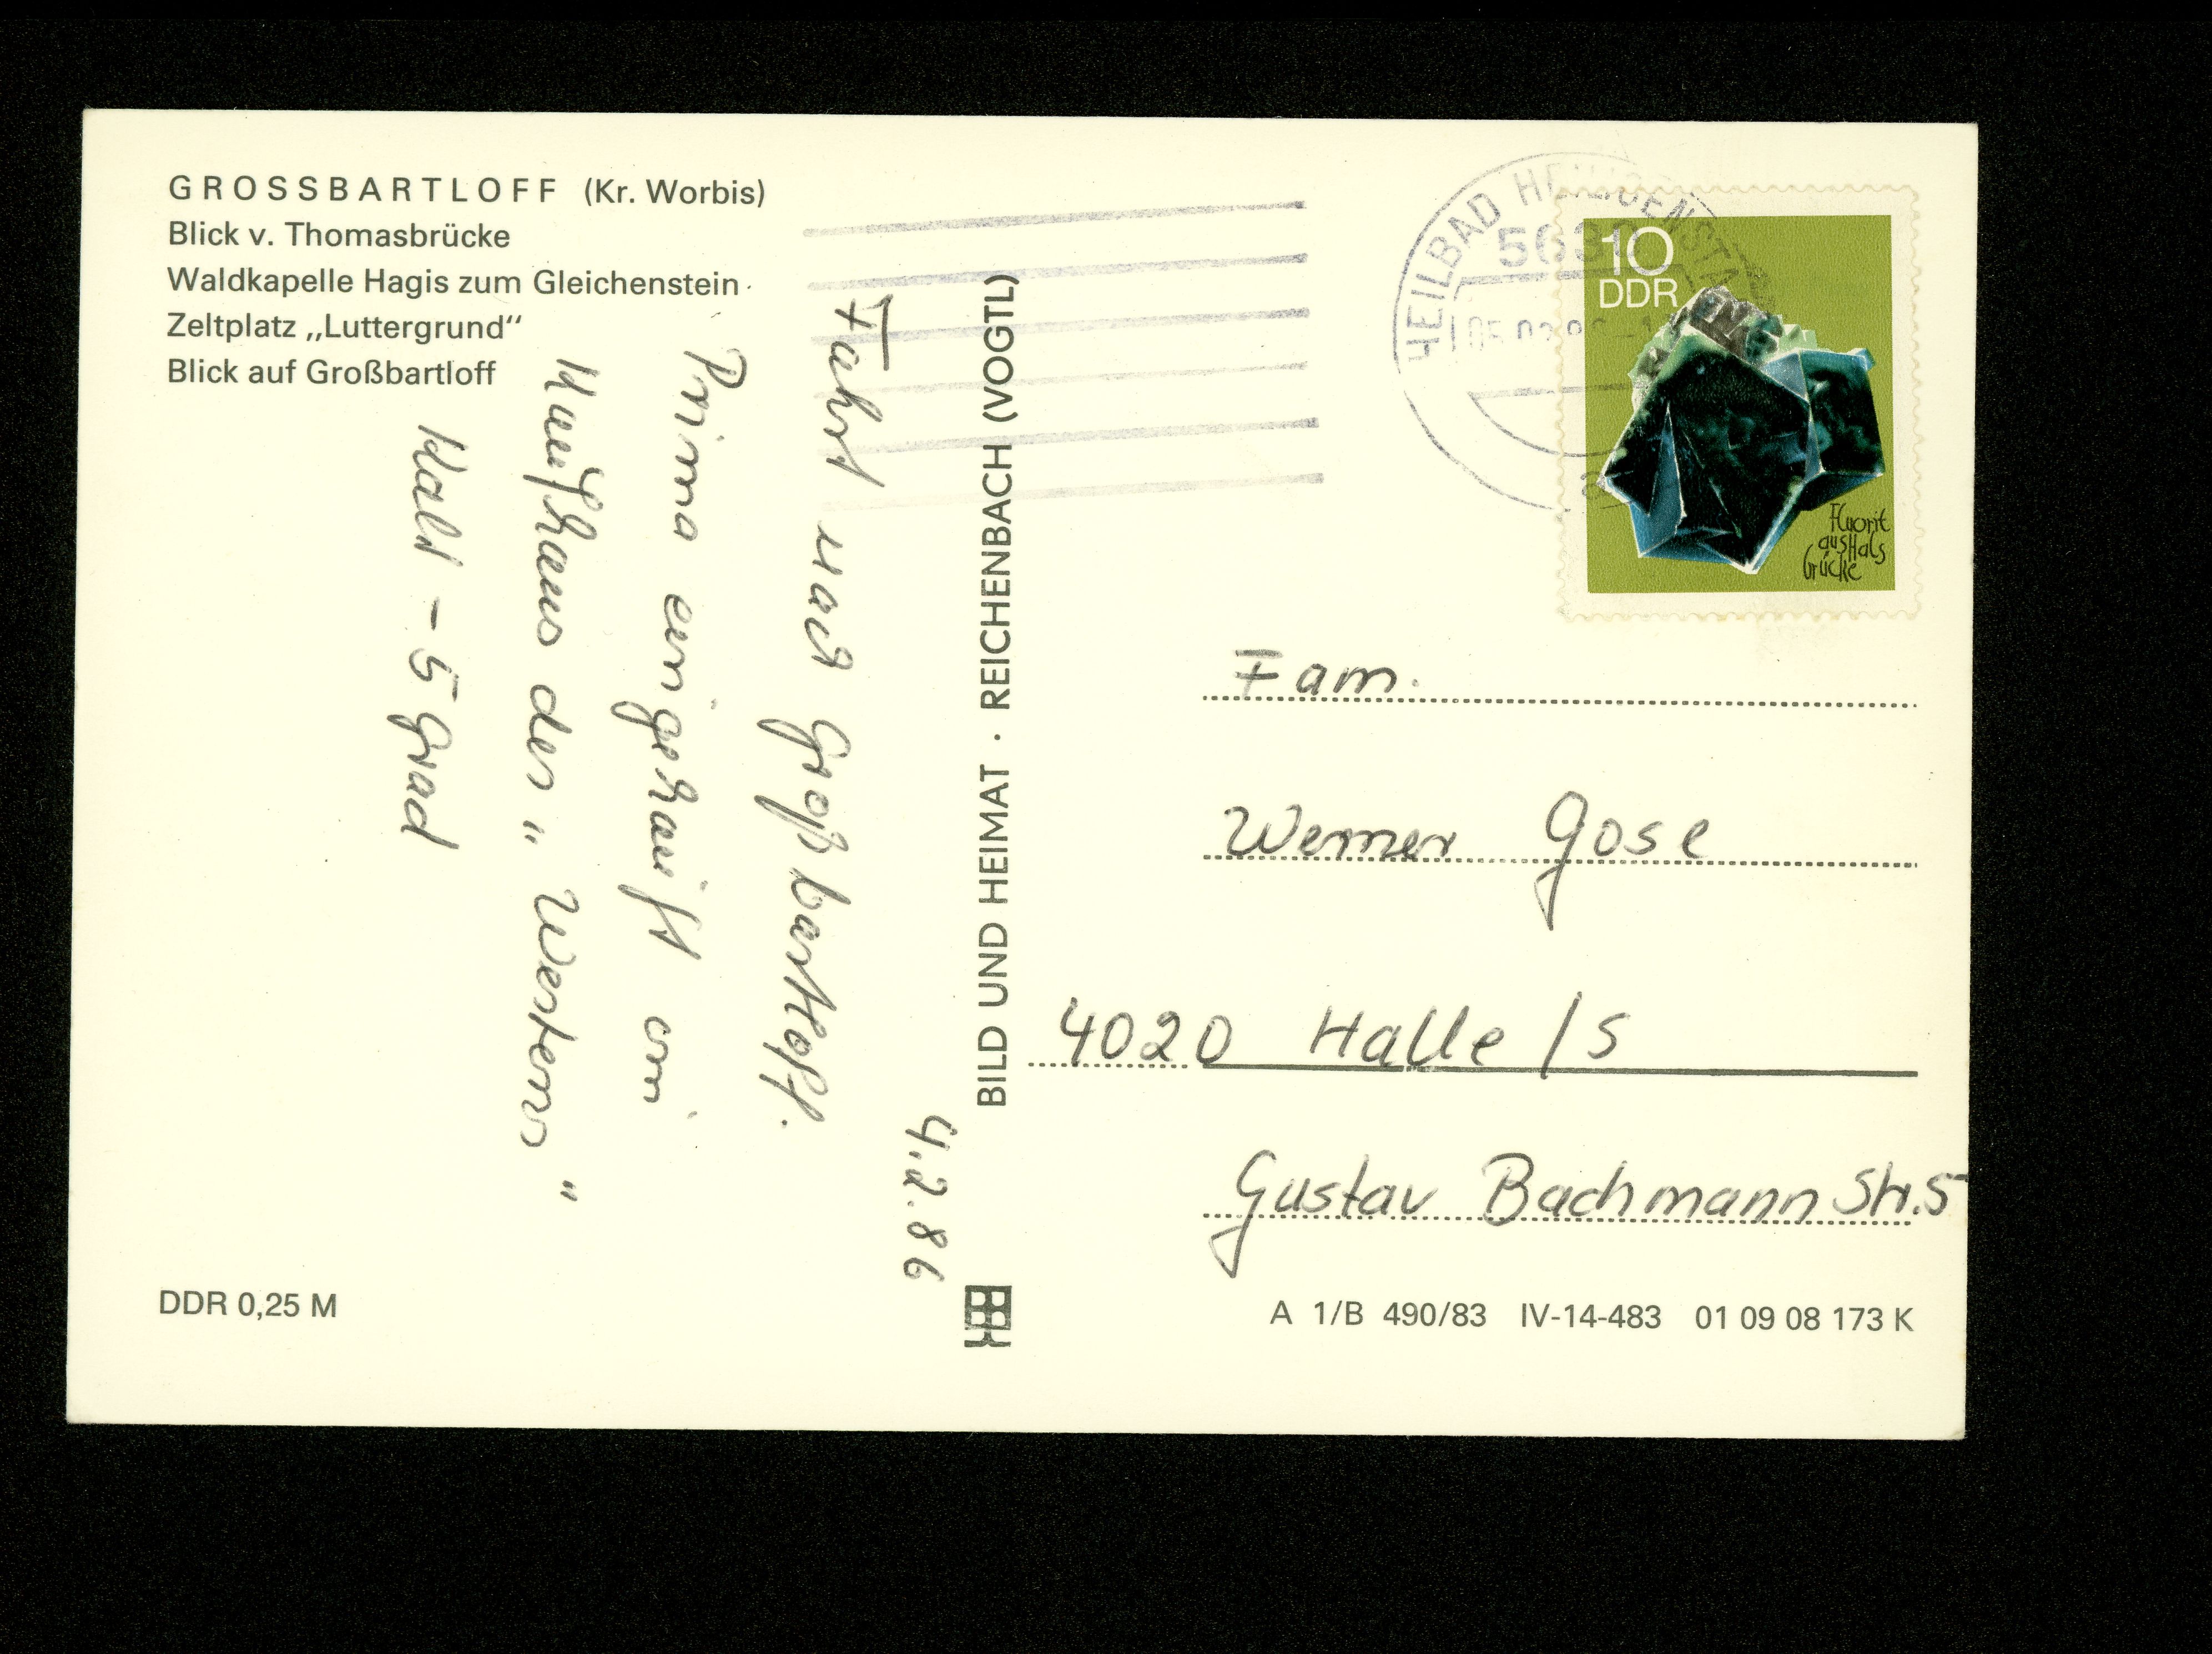 GROSSBARTLOFF (Kr. Worbis)
Blick v. Thomasbrücke
Waldkapelle Hagis zum Gleichenstein
Zeltplatz „Luttergrund“
Blick auf Großbartloff
4.2.86
Fahrt nach Großbartloff.
Prima eingekauft im
Kaufhaus des " Westens "
Kalt - 5 Grad
DDR 0,25 M
BILD UND HEIMAT · REICHENBACH (VOGTL)
HEILBAD HEILIGENSTADT
5630
a
10
DDR
Fluorit
aus Hals
brücke
Fam.
Werner Gose
4020 Halle / S
Gustav Bachmann Str. 5
A 1/B 490/83 IV-14-483 01 09 08 173 K